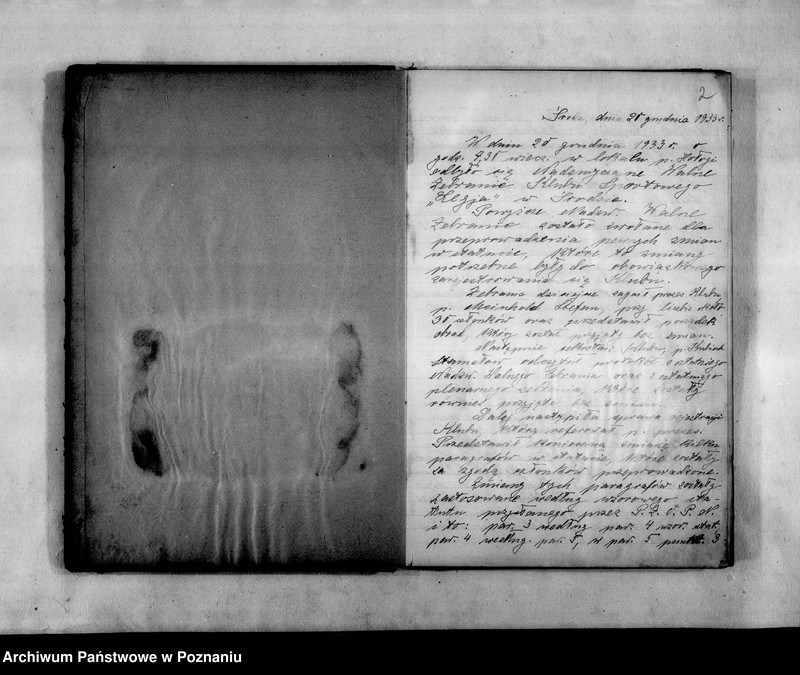 2
Środa, dnia 28 grudnia 1933 r.
W dniu 28 grudnia 1933 r. o
godz. 9,35 wiecz. w lokalu p.
odbyło się Nadzwyczajne Walne
Zebranie Klubu Sportowego
„Legja" w Środzie.
Powyższe Nadzw. Walne
Zebranie zostało zwołane dla
przeprowadzenia pewnych zmian
w statucie, które to zmiany
potrzebne były do obowiązkowego
zarejestrowania się Klubu.
Zebranie dzisiejsze zagaił prezes Klubu
p. Meinhold Stefan, przy liczbie około
30 członków oraz przedstawił porządek
obrad, który został przyjęty bez zmian.
Następnie sekretarz Klubu, p.
Stanisław odczytał protokół z ostatniego
Nadzw. Walnego Zebrania oraz z ostatniego
plenarnego zebrania, które zostały
również przyjęte bez zmian.
Dalej nastąpiła sprawa rejestracji
Klubu, którą referował p. prezes.
Przedstawił konieczną zmianę kilku
paragrafów w statucie, które zostały
za zgodą członków przeprowadzone.
Zmiany tych paragrafów zostały
zastosowane według wzorowego sta-
tutu przysłanego przez P. Z. O. P. N.
i to: par. 3 według par. 4 wzor. stat.
par. 4 według. par. 5, w par. 5 punkt. 3
Archiwum Państwowe w Poznaniu